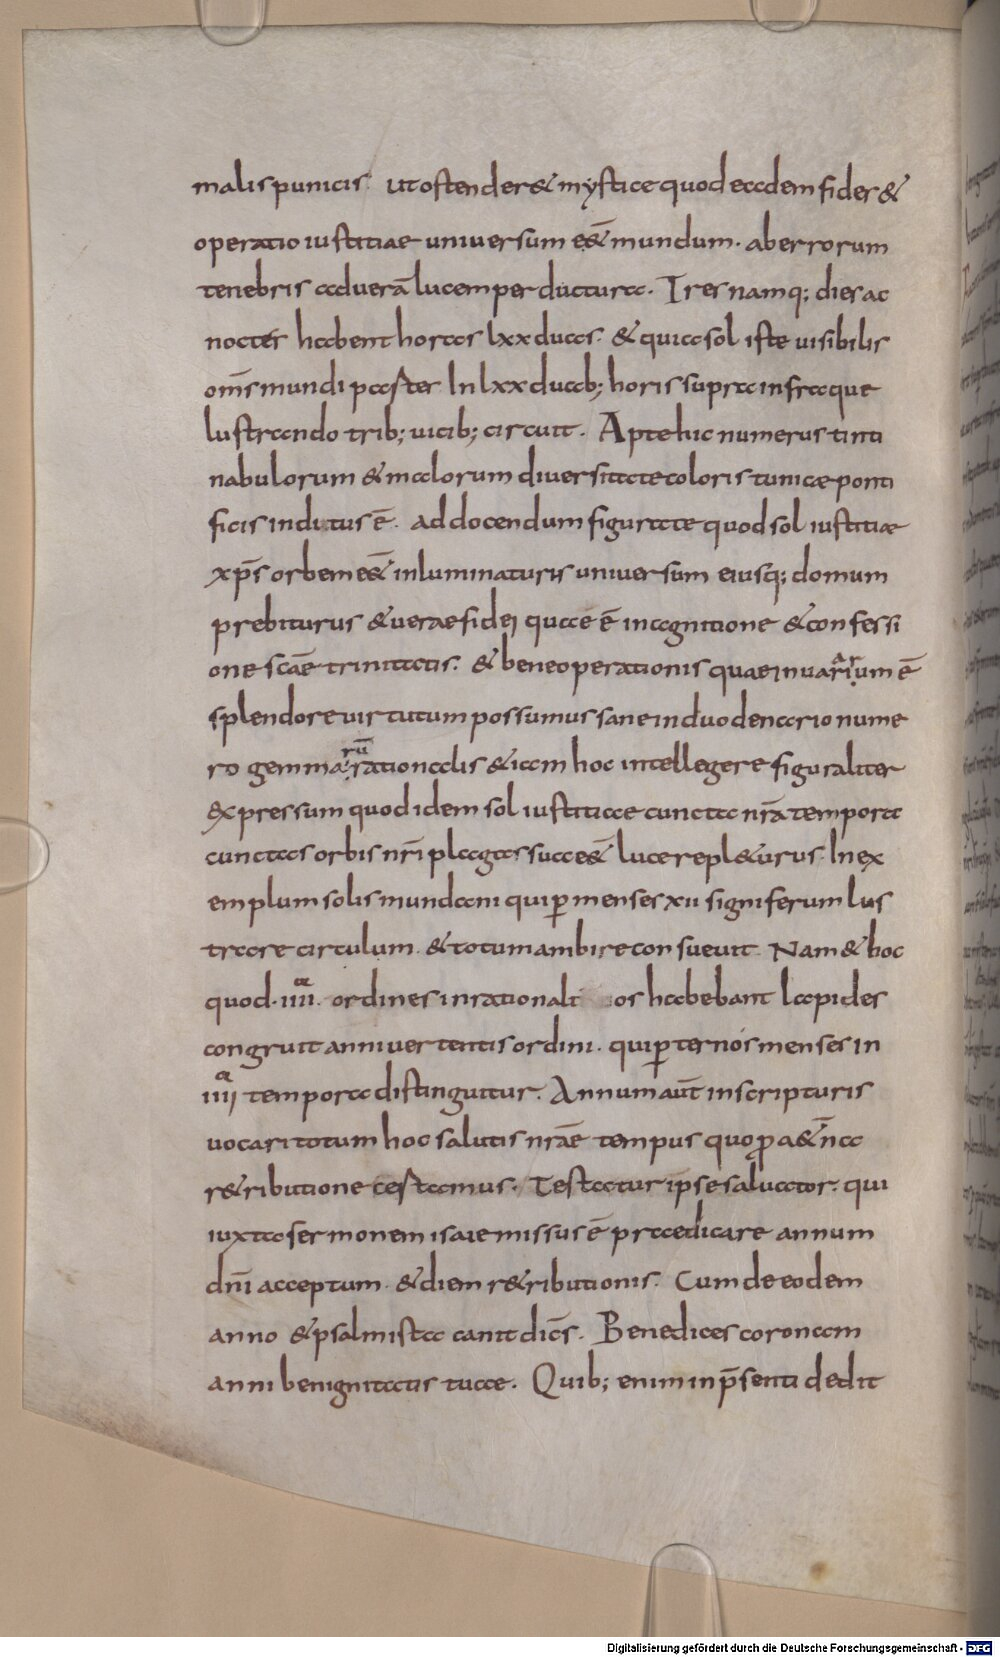 malis punicis. ut ostender& mystice quod eadem fider &
operatio iustitiae uniuersum ess& mundum. ab errorum
tenebris ad uerā lucem per ductura. Tres namq; dies ac
noctes habent horas lxxduas. & quia sol iste uisibilis
om̄s mundi partes In lxxduab; horis supra infraque
lustrando trib; uicib; circuit. Apte hic numerus tinti
nabulorum & malorum diuersitate coloris tunicæ ponti
ficis inditus ē. ad docendum figurate quod sol iustitiæ
xp̄s orbem ess& inluminaturis uniuersum eiusq; domum
prebiturus & uerae fidei quae ē in cognitione & confessi
one scāe trinitatis. & bene operationis quae in uariarum ē
splendore uirtutum possumus sane in duodenario nume
ro gemmarū rationalis & iam hoc intellegere figuraliter
expressum quod idem sol iustitiae cuncta nr̄a tempora
cunctas orbis nr̄i plagas sua ess& luce repl&urus. In ex
emplum solis mundani qui ꝑ menses xii signiferum lus
trare circulum. & totum ambire consueuit. Nam & hoc
quod. iiii. ordines in rationali os habebant lapides
congruit anni uertentis ordini. qui ꝑ ternos menses in
iiii tempora distinguitur. Annum aut̄ in scripturis
uocari totum hoc salutis nr̄ae tempus quo ꝓ a&ern̄a
r&ributione certamus. Testatur ipse saluator. qui
iuxta sermonem isaie missus ē praedicare annum
dn̄i acceptum. & diem r&ributionis. Cum de eodem
anno & psalmista canit dicēs. Benedices coronam
anni benignitatis tuae. Quib; enim in p̄senti dedit
Digitalisierung gefördert durch die Deutsche Forschungsgemeinschaft - DFG